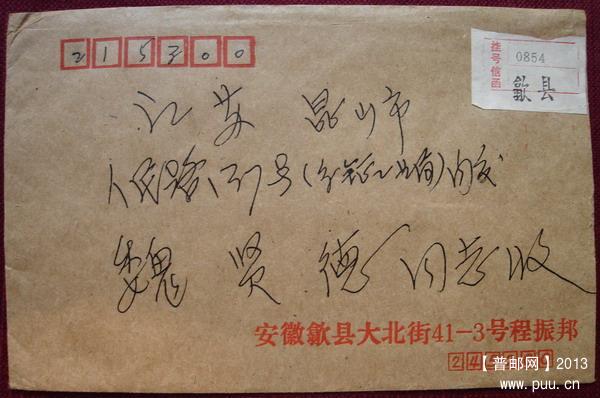 215300
挂号信函
0854
歙县
江苏 昆山市
人民路
号
魏贤德 同志收
安徽歙县大北街41-3号程振邦
【普邮网】2013
www.puu.cn